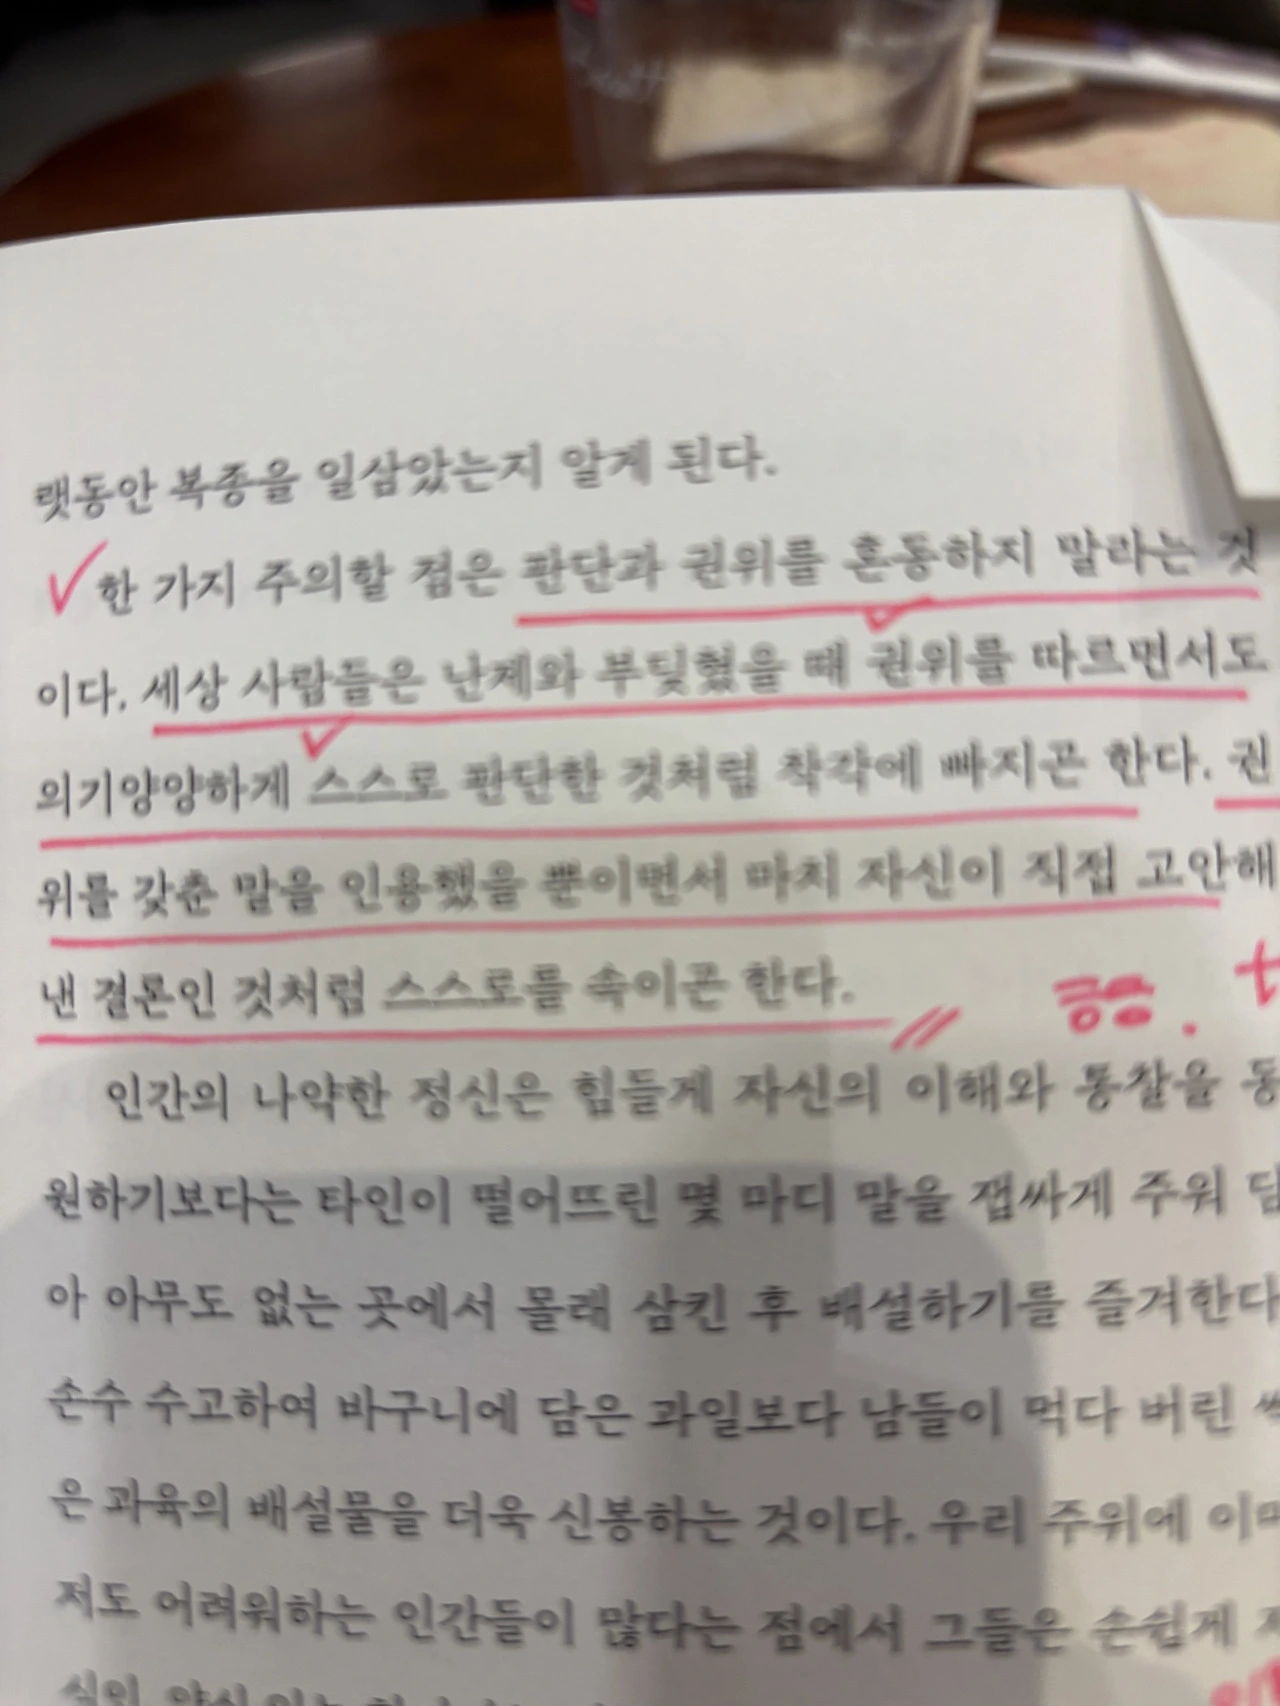 랫동안 복종을 일삼았는지 알게 된다.
한 가지 주의할 점은 판단과 권위를 혼동하지 말라는 것
이다. 세상 사람들은 난제와 부딪혔을 때 권위를 따르면서도
의기양양하게 스스로 판단한 것처럼 착각에 빠지곤 한다. 권
위를 갖춘 말을 인용했을 뿐이면서 마치 자신이 직접 고안해
낸 결론인 것처럼 스스로를 속이곤 한다.
인간의 나약한 정신은 힘들게 자신의 이해와 통찰을 동
원하기보다는 타인이 떨어뜨린 몇 마디 말을 잽싸게 주워 담
아 아무도 없는 곳에서 몰래 삼킨 후 배설하기를 즐겨한다
손수 수고하여 바구니에 담은 과일보다 남들이 먹다 버린
은 과육의 배설물을 더욱 신봉하는 것이다. 우리 주위에
저도 어려워하는 인간들이 많다는 점에서 그들은 손쉽게